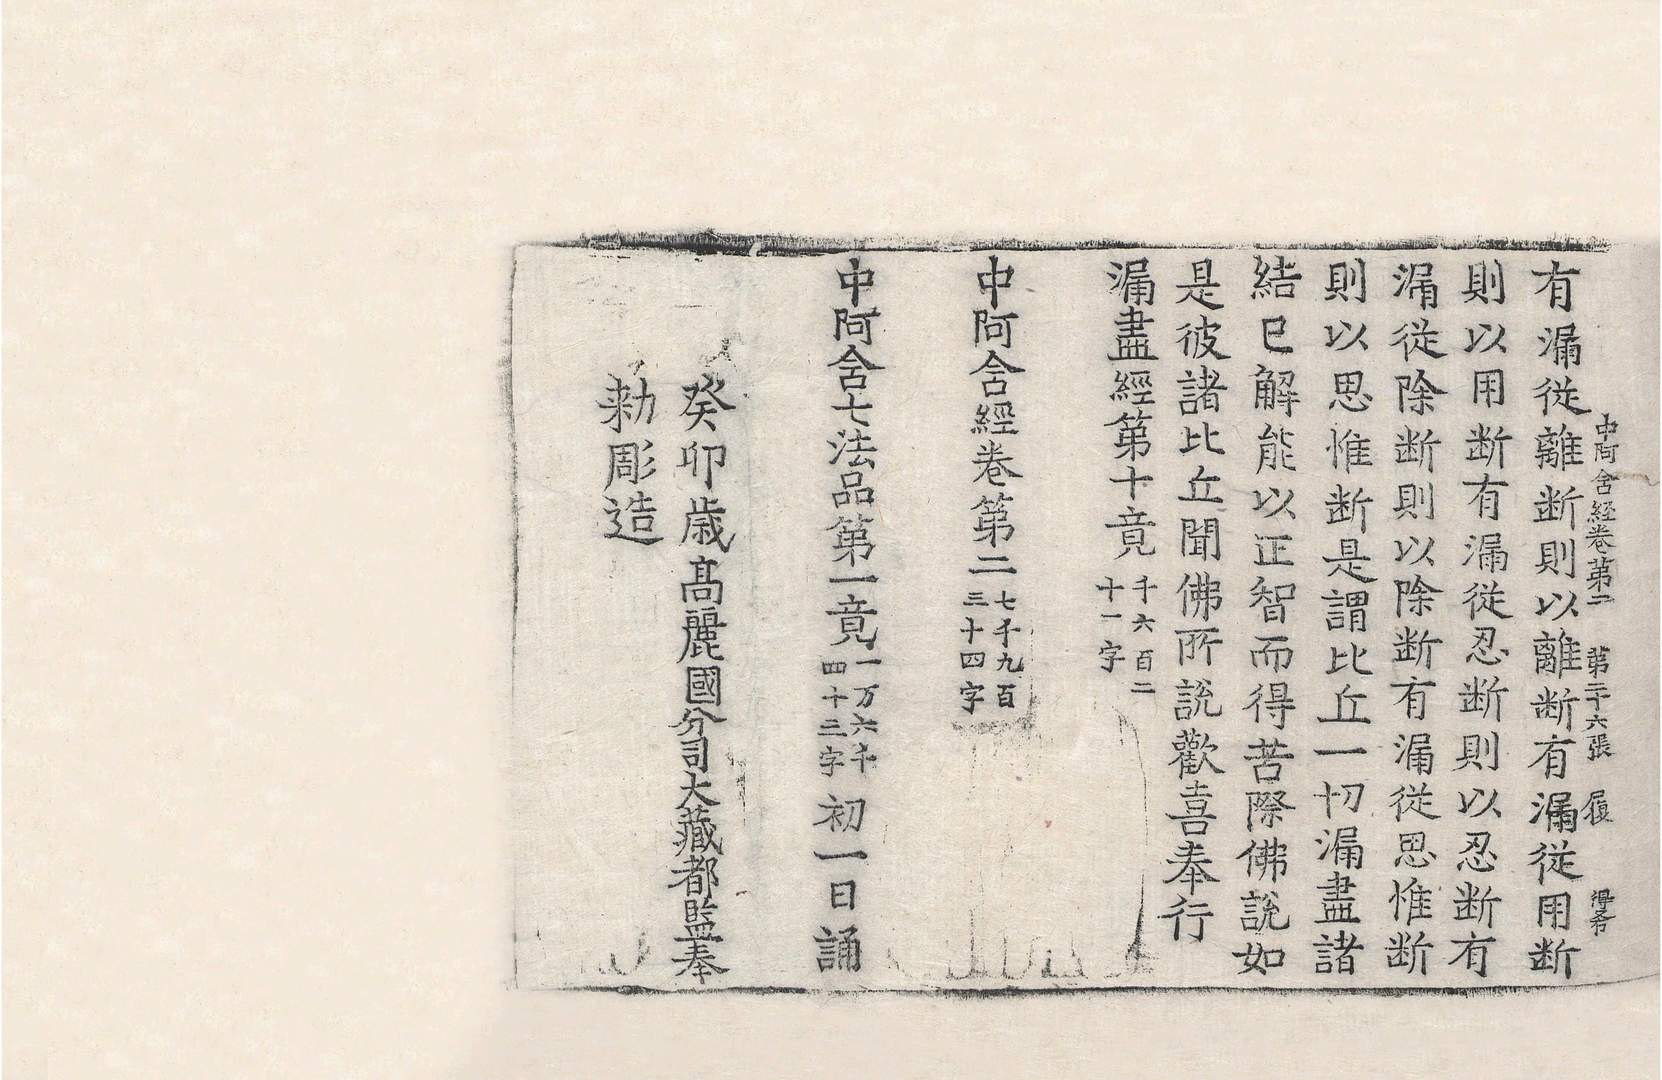 中阿含経卷第二 第二十六張 履 得
有漏従離断則以離断有漏従用断
則以用断有漏従忍断則以忍断有
漏従除断則以除断有漏従思惟断
則以思惟断是謂比丘一切漏盡諸
結已解能以正智而得苦際佛說如
是彼諸比丘聞佛所說歡喜奉行
漏盡經第十竟千六百二十一字
中阿含經卷第二七千九百三十四字
中阿含七法品第一竟一万六千四十二字初一日誦
癸卯歲髙麗國分司大藏都監奉
勑彫造